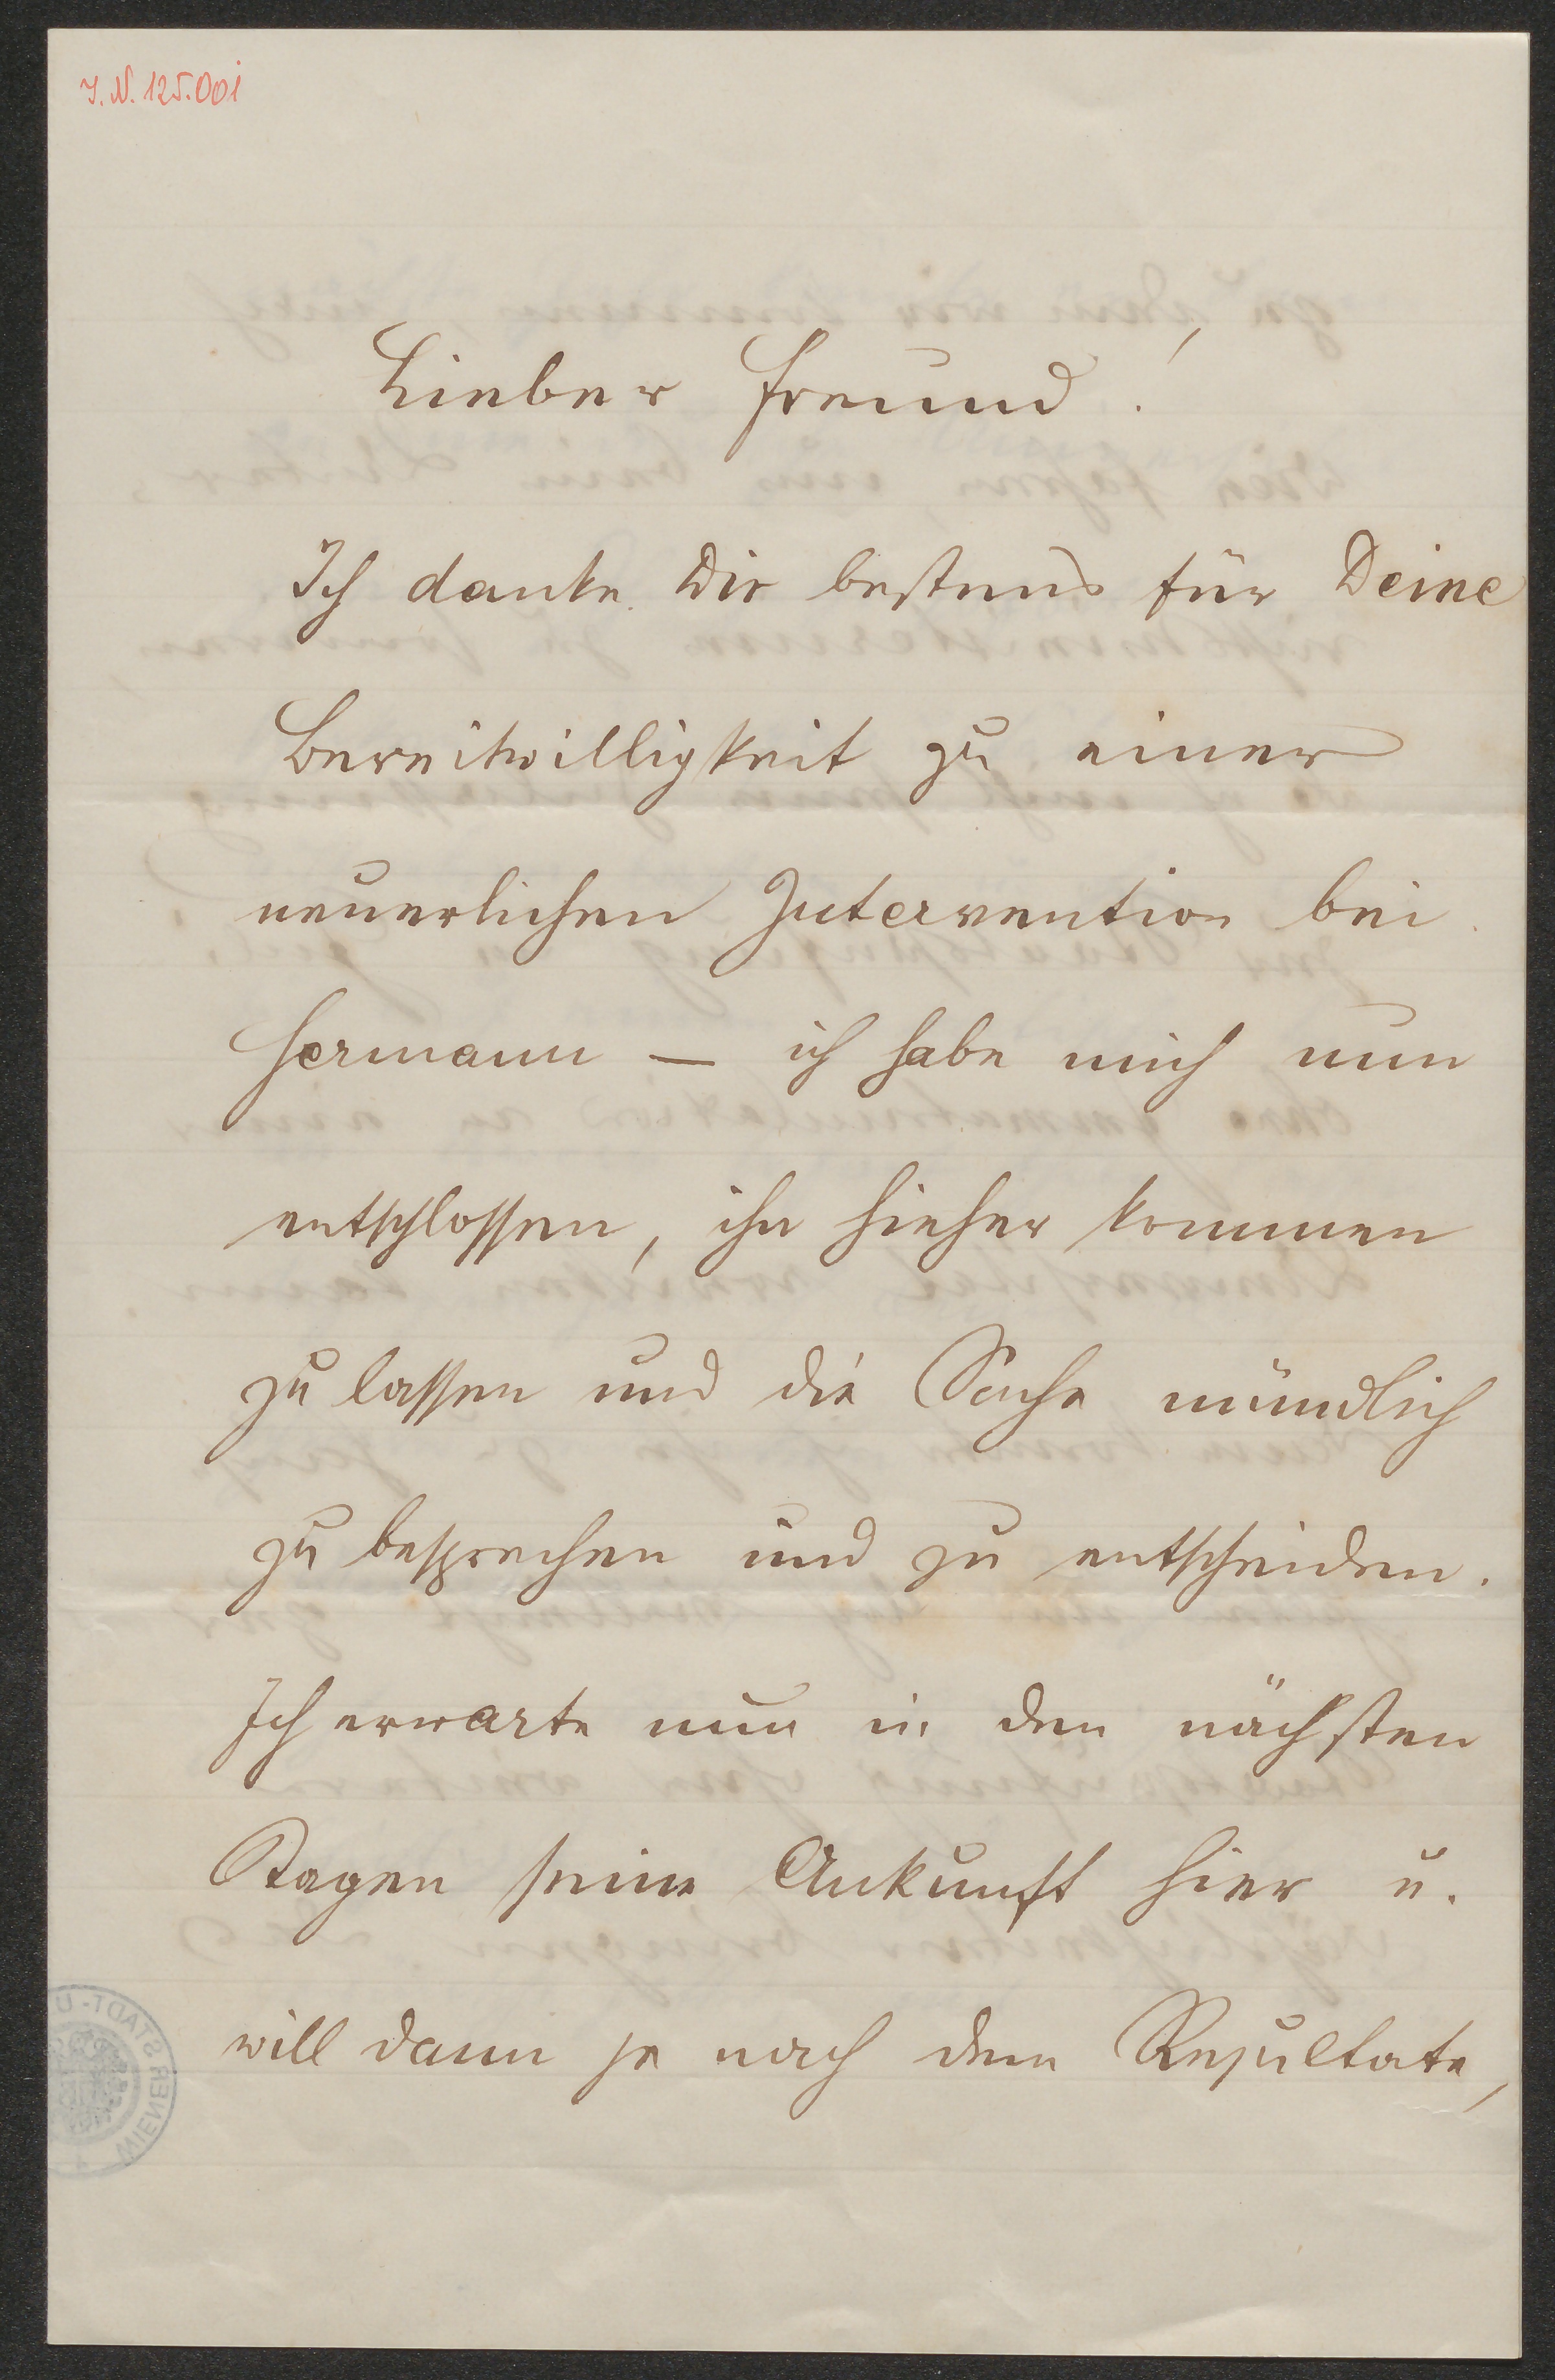 I. N. 125.001
Lieber Freund!
Ich danke Dir bestens für Deine
Bereitwilligkeit zu einer
neuerlichen Intervention bei
Hermann — ich habe mich nun
entschlossen, ihn hieher kommen
zu lassen und die Sache mündlich
zu besprechen und zu entscheiden.
Ich erwarte nun in den nächsten
Tagen seine Ankunft hier u.
will dann je nach dem Resultate,
WIENER STADT- U